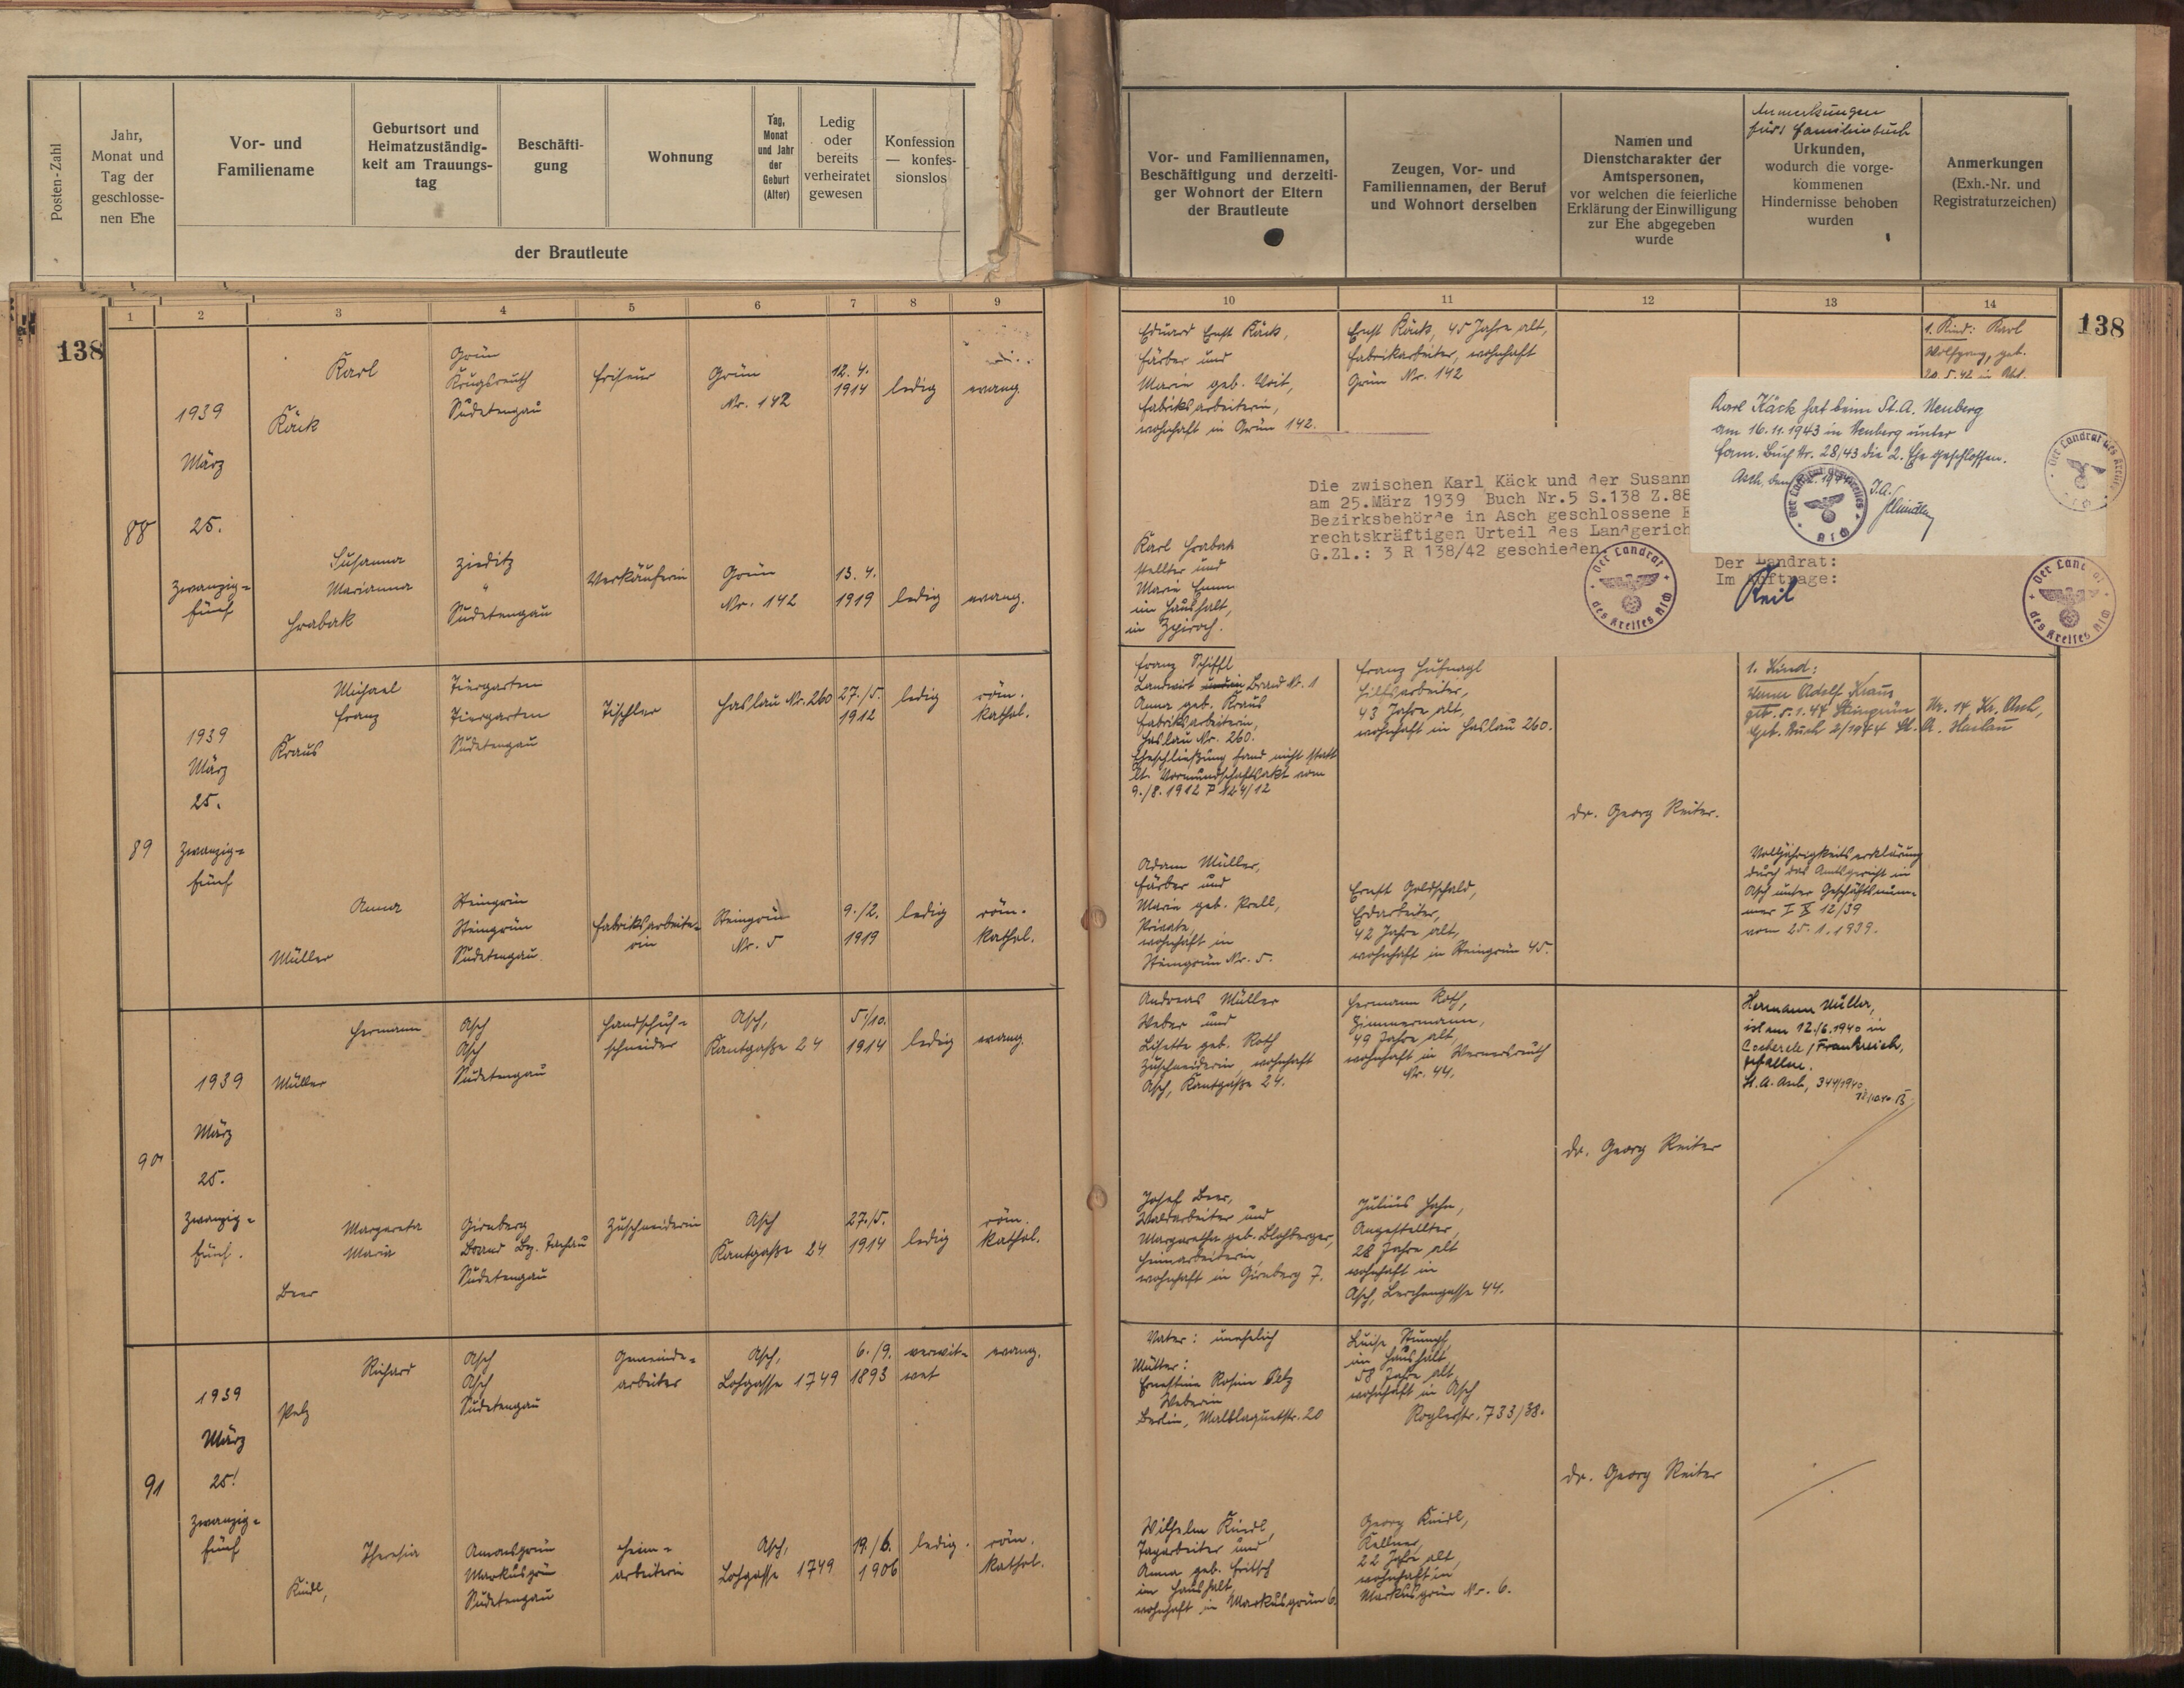 Posten-Zahl
Jahr,
Monat und
Tag der
geschlosse-
nen Ehe
Vor- und
Familiename
Geburtsort und
Heimatzuständig-
keit am Trauungs-
tag
Beschäfti-
gung
Wohnung
Tag,
Monat
und Jahr
der
Geburt
(Alter)
Ledig
oder
bereits
verheiratet
gewesen
Konfession
— konfes-
sionslos
der Brautleute
Vor- und Familiennamen,
Beschäftigung und derzeiti-
ger Wohnort der Eltern
der Brautleute
Zeugen, Vor- und
Familiennamen, der Beruf
und Wohnort derselben
Namen und
Dienstcharakter der
Amtspersonen,
vor welchen die feierliche
Erklärung der Einwilligung
zur Ehe abgegeben
wurde
Anmerkungen
fürs Familienbuch
Urkunden,
wodurch die vorge-
kommenen
Hindernisse behoben
wurden
Anmerkungen
(Exh.-Nr. und
Registraturzeichen)
1 2 3 4 5 6 7 8 9
10 11 12 13 14
138
138
88
1939
März
25.
Zwanzig=
fünf
Karl
Käck
Grün
Krugsreuth
Sudetengau
Friseur
Grün
Nr. 142
12. 4.
1914
ledig
evang.
Susanna
Marianna
Hrabak
Zieditz
"
Sudetengau
Verkäuferin
Grün
Nr. 142
13. 4.
1919
ledig
evang.
Eduard Ernst Käck,
Färber und
Marie geb. Voit,
Fabriksarbeiterin,
wohnhaft in Grün 142.
Karl Hrabak
stellter und
Marie
im Haushalt,
in
Ernst Käck, 45 Jahre alt,
Fabrikarbeiter, wohnhaft
Grün Nr. 142
1. Kind: Karl
Wolfgang, geb.
Die zwischen Karl Käck und der Susann
am 25.März 1939 Buch Nr.5 S.138 Z.88
Bezirksbehörde in Asch geschlossene E
rechtskräftigen Urteil des Landgerich
G.Zl.: 3 R 138/42 geschieden.
Der Landrat:
Im Auftrage:
Keil
Der Landrat
des Kreises Asch
Der Landrat
des Kreises Asch
Karl Käck hat beim St.A. Neuberg
am 16.11.1943 in Neuberg unter
Fam. Buch Nr. 28/43 die 2. Ehe geschlossen.
Asch, den
I.A.
Der Landrat des Kreises
Asch
Der Landrat des Kreises
Asch
89
1939
März
25.
Zwanzig=
fünf
Michael
Franz
Kraus
Tiergarten
Tiergarten
Sudetengau
Tischler
Haslau Nr. 260
27./5.
1912
ledig
röm.
kathol.
Anna
Müller
Steingrün
Steingrün
Sudetengau
Fabriksarbeite=
rin
Steingrün
Nr. 5
9./2.
1919
ledig
röm.
kathol.
Franz Schiffl
Landwirt Brand Nr. 1
Anna geb. Kraus
Fabriksarbeiterin,
Haslau Nr. 260.
Eheschließung fand nicht statt
lt. Vormundschaftsakt vom
9./8. 1912 P 124/12
Adam Müller,
Färber und
Marie geb. Prell,
Private,
wohnhaft in
Steingrün Nr. 5.
Franz Hufnagl
Hilfsarbeiter,
43 Jahre alt,
wohnhaft in Haslau 260.
Ernst Goldschald,
Erdarbeiter,
42 Jahre alt,
wohnhaft in Steingrün 45.
Dr. Georg Reiter.
1. Kind:
Werner Adolf Kraus
geb. 5.1.44 Steingrün Nr. 14 Kr. Asch,
Geb. Buch 2/1944 St. A. Haslau
Volljährigkeitserklärung
durch das Amtsgericht in
Asch unter Geschäftsnum-
mer I X 12/39
vom 25. 1. 1939.
90
1939
März
25.
Zwanzig=
fünf.
Hermann
Müller
Asch
Asch
Sudetengau
Handschuh=
schneider
Asch,
Kantgaße 24
5./10.
1914
ledig
evang.
Margareta
Maria
Beer
Girnberg
Brand Bez. Tachau
Sudetengau
Zuschneiderin
Asch
Kantgaße 24
27./5.
1914
ledig
röm.
kathol.
Andreas Müller
Weber und
Lisette geb. Roth
Zuschneiderin, wohnhaft
Asch, Kantgaße 24.
Josef Beer,
Waldarbeiter und
Margaretha geb. Blohberger,
Heimarbeiterin
wohnhaft in Girnberg 7.
Hermann Roth,
Zimmermann,
49 Jahre alt,
wohnhaft in Wernersreuth
Nr. 44.
Julius Hahn,
Angestellter,
28 Jahre alt
wohnhaft in
Asch, Lerchengasse 44.
Dr. Georg Reiter
Hermann Müller,
ist am 12./6.1940 in
Cocherele / Frankreich,
gefallen.
St. A. Asch, 344/1940
91
1939
März
25!
Zwanzig=
fünf
Richard
Pelz
Asch
Asch
Sudetengau
Gemeinde=
arbeiter
Asch,
Lohgasse 1749
6./9.
1893
verwit=
wet
evang.
Theresia
Kuidl,
Amonsgrün
Markusgrün
Sudetengau
Heim=
arbeiterin
Asch,
Lohgasse 1749
19./6.
1906
ledig.
röm.
kathol.
Vater: unehelich
Mutter:
Ernestine Rosine Pelz
Weberin
Berlin, Malblaquetstr. 20
Wilhelm Kuidl,
Tagarbeiter und
Anna geb. Fritsch
im Haushalt,
wohnhaft in Markusgrün 6.
Luise Stumpf,
im Haushalt,
58 Jahre alt
wohnhaft in Asch
Roglerstr. 733/38.
Georg Kuidl,
Kellner,
22 Jahre alt,
wohnhaft in
Markusgrün Nr. 6.
Dr. Georg Reiter